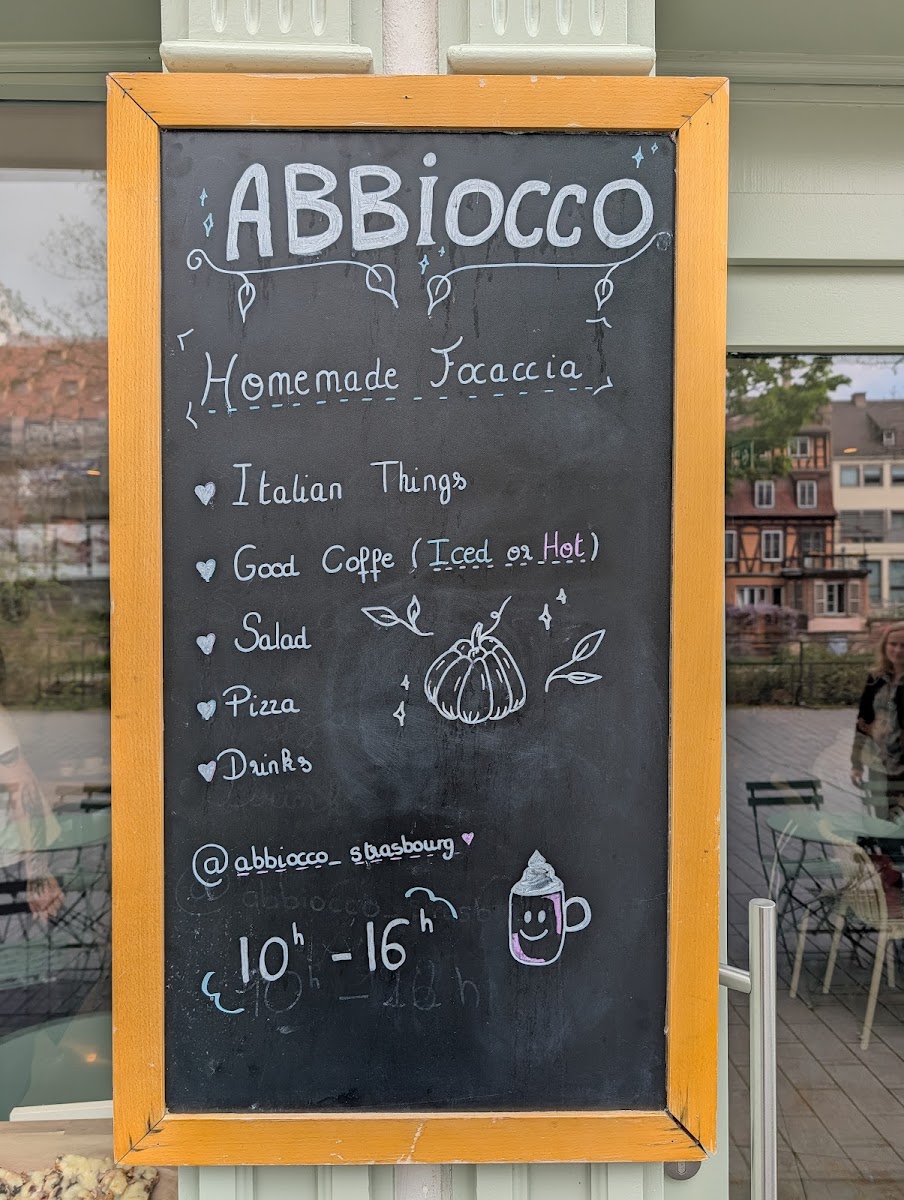 ABBiOCCO
Homemade Focaccia
Italian Things
Good Coffe (Iced or Hot)
Salad
Pizza
Drinks
@abbiocco_strasbourg
10h - 16h